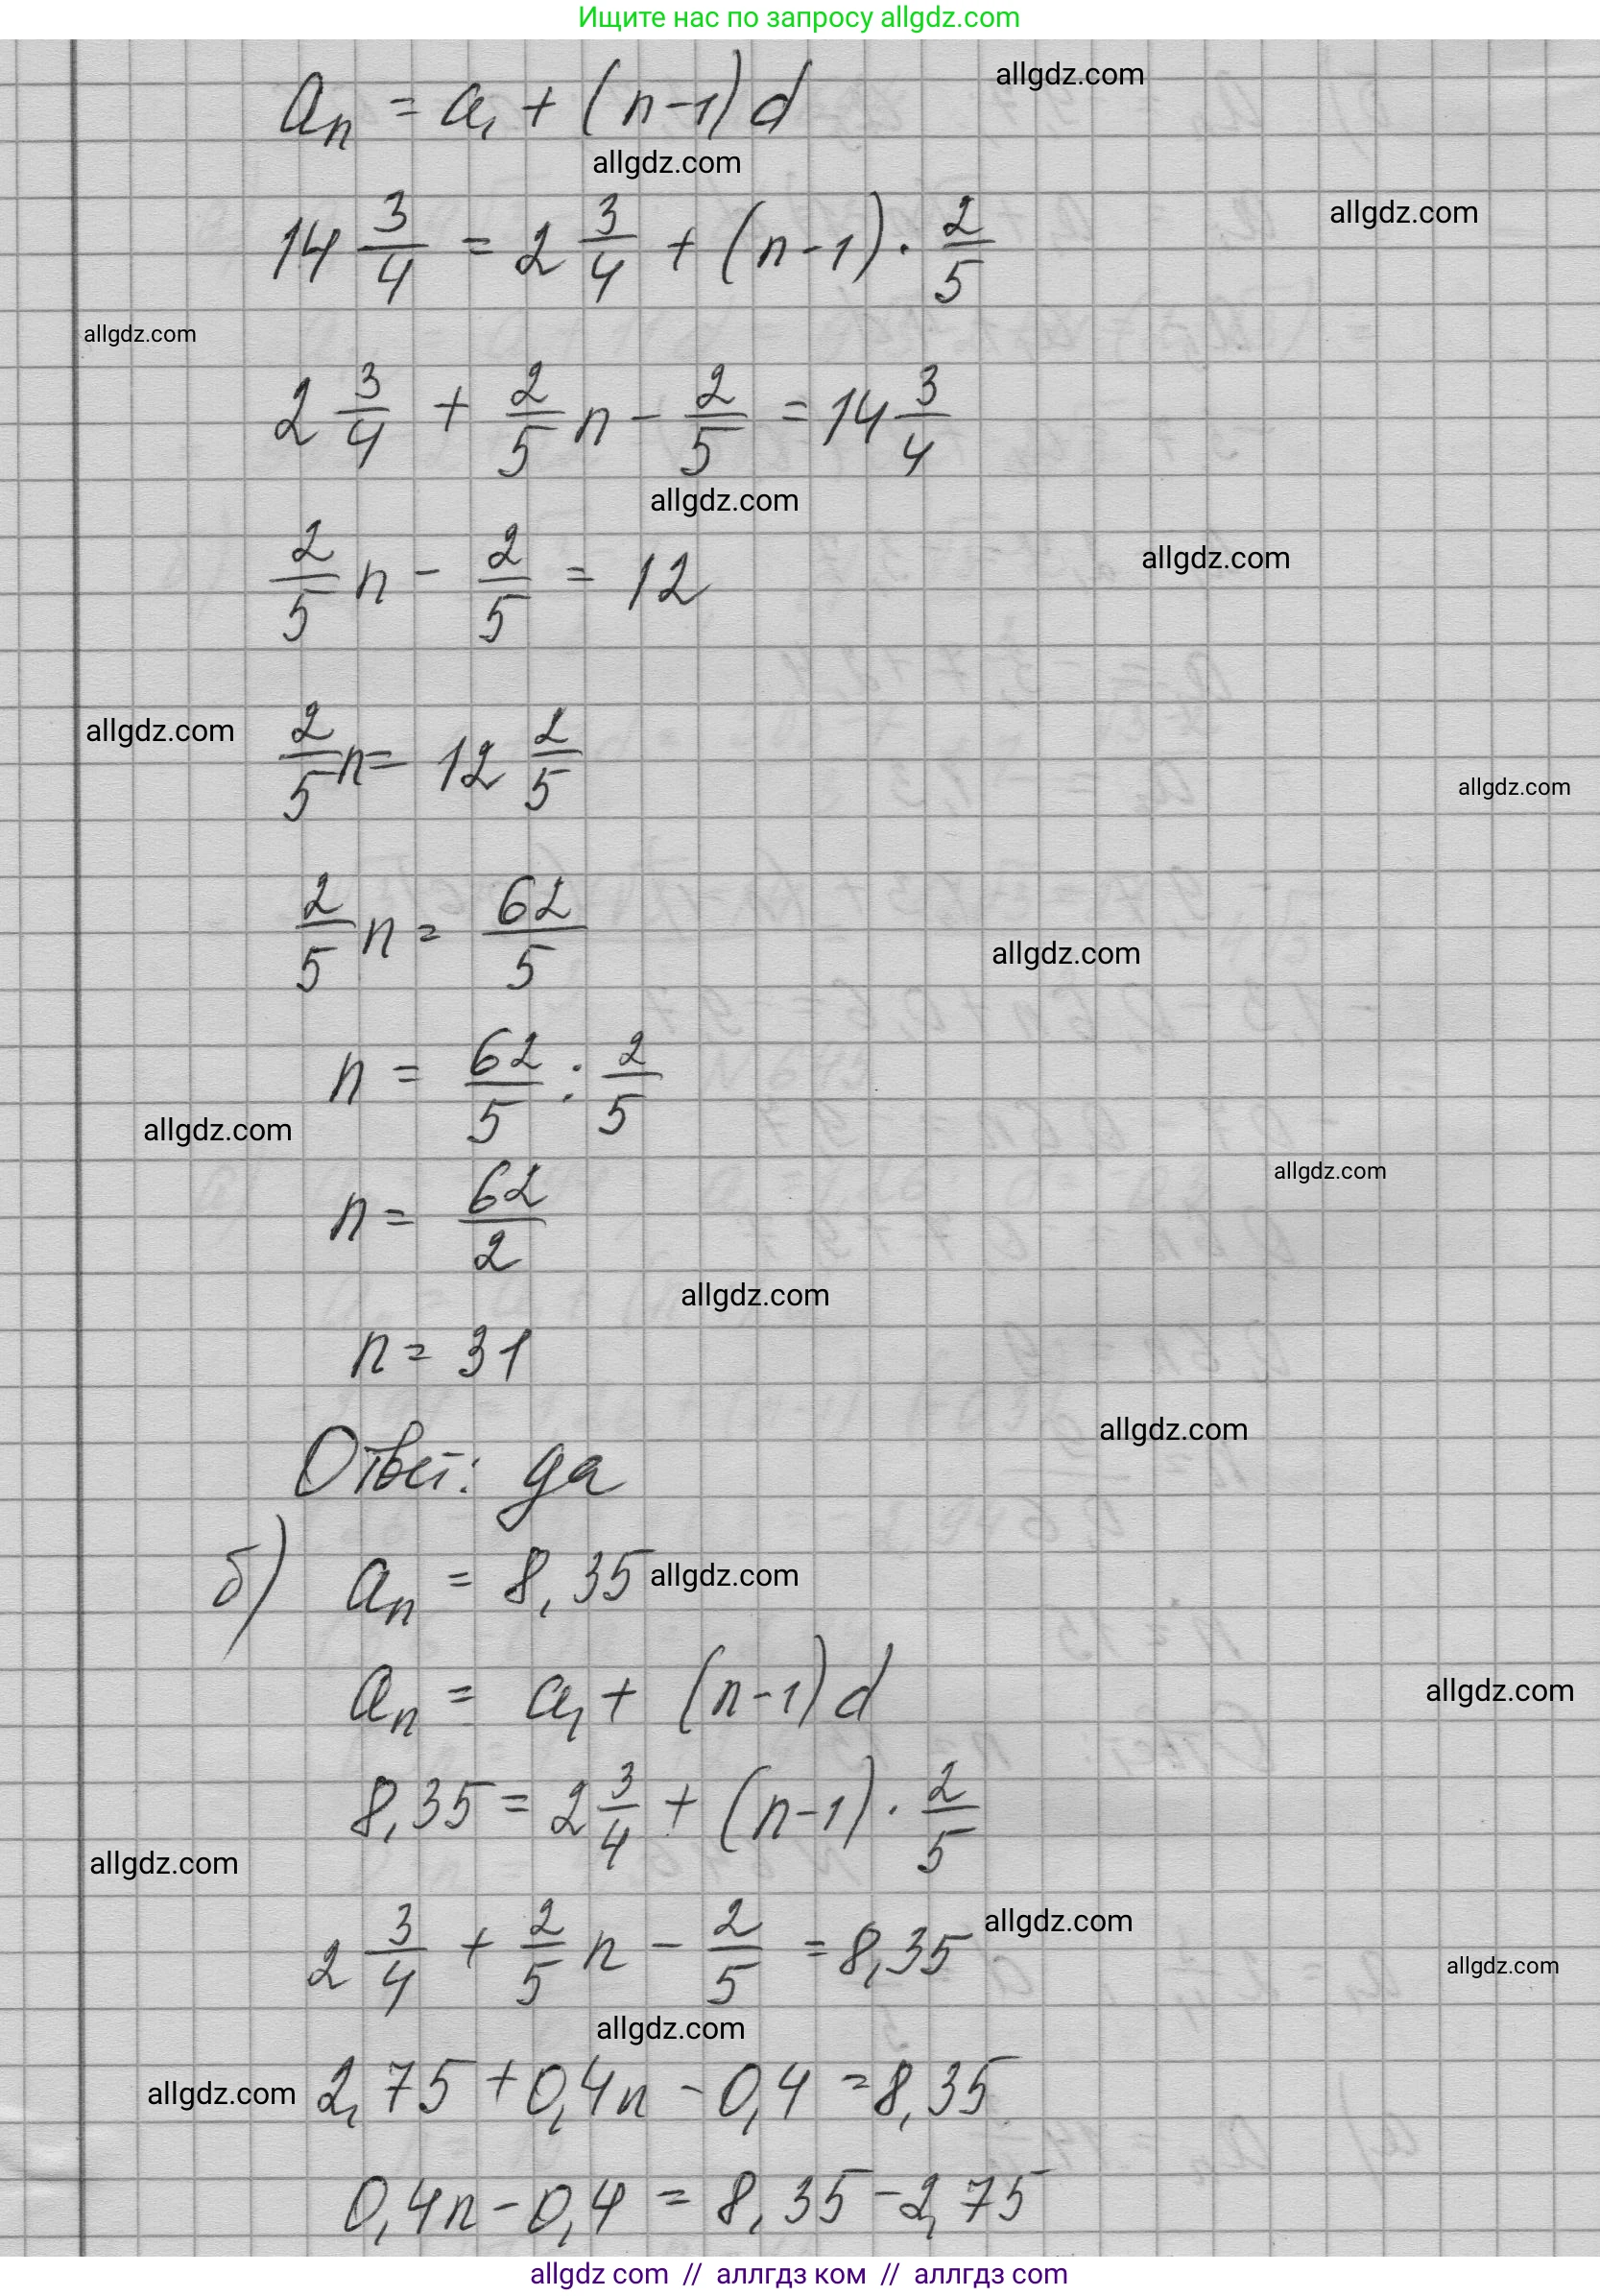 Ищите нас по запросу allgdz.com
allgdz.com
aₙ = a₁ + (n-1) d
allgdz.com
allgdz.com
14 3/4 = 2 3/4 + (n-1) · 2/5
allgdz.com
2 3/4 + 2/5 n - 2/5 = 14 3/4
allgdz.com
allgdz.com
2/5 n - 2/5 = 12
allgdz.com
2/5 n = 12 2/5
allgdz.com
2/5 n = 62/5
allgdz.com
n = 62/5 : 2/5
allgdz.com
allgdz.com
n = 62/2
allgdz.com
n = 31
allgdz.com
Ответ: да
б) aₙ = 8,35
allgdz.com
aₙ = a₁ + (n-1) d
allgdz.com
8,35 = 2 3/4 + (n-1) · 2/5
allgdz.com
allgdz.com
2 3/4 + 2/5 n - 2/5 = 8,35
allgdz.com
allgdz.com
allgdz.com
2,75 + 0,4n - 0,4 = 8,35
0,4n - 0,4 = 8,35 - 2,75
allgdz com // аллгдз ком // аллгдз com